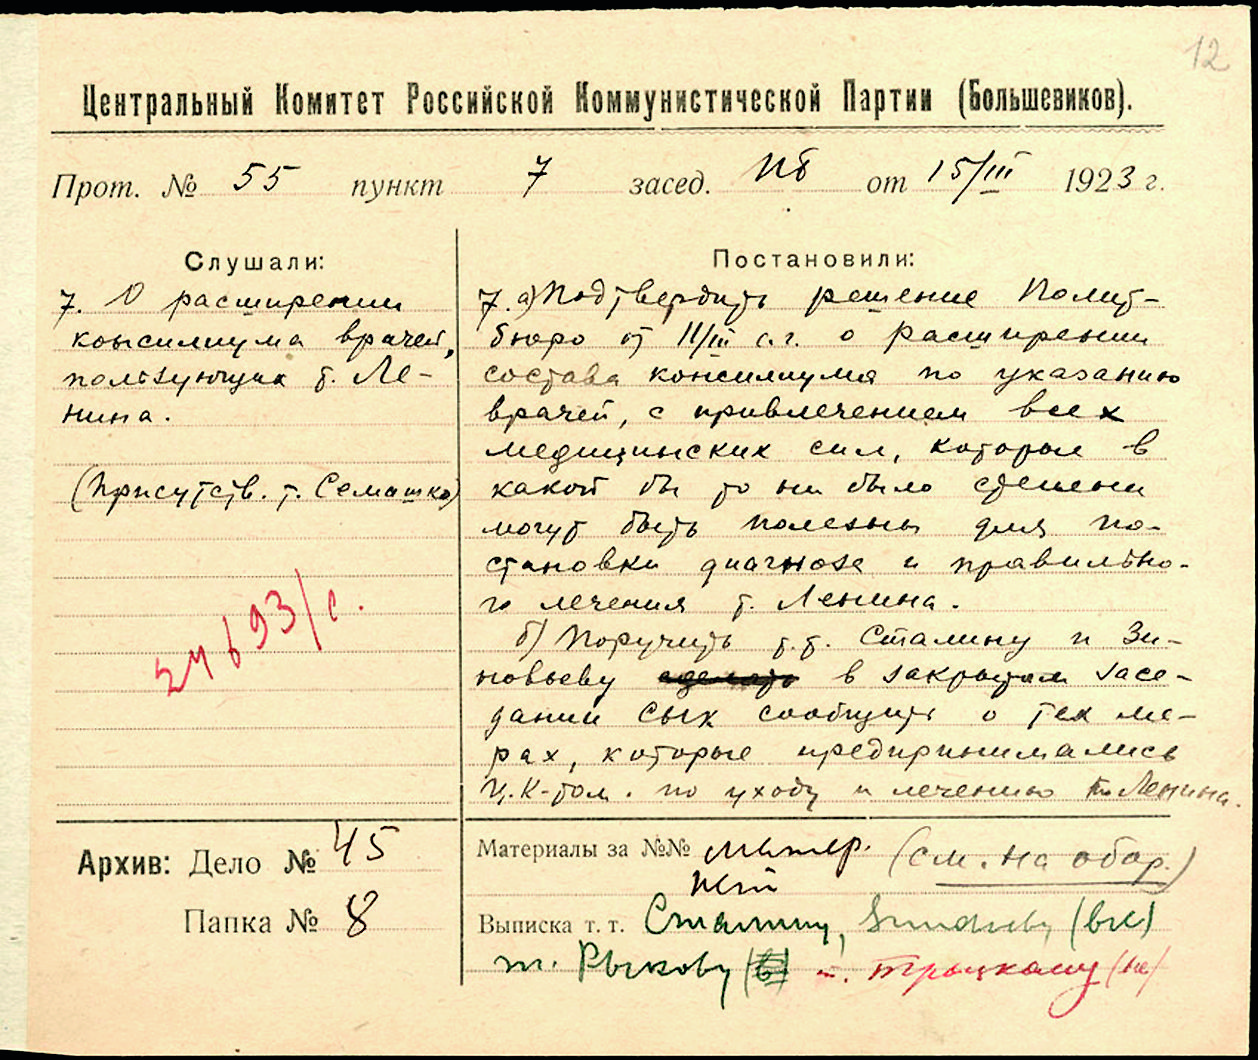 12
Центральный Комитет Российской Коммунистической Партии (Большевиков).
Прот. № 55 пункт 7 засед. ПБ от 15/III 1923 г.
Слушали:
7. О расширении
консилиума врачей,
пользующих т. Ле-
нина.
(Присутств. т. Семашко)
Постановили:
7. а) Подтвердить решение Полит-
бюро от 11/III с.г. о расширении
состава консилиума по указанию
врачей, с привлечением всех
медицинских сил, которые в
какой бы то ни было степени
могут быть полезны для по-
становки диагноза и правильно-
го лечения т. Ленина.
б) Поручить т.т. Сталину и Зи-
новьеву в закрытом засе-
дании Съезда сообщить о тех ме-
рах, которые предпринимались
Ц.К-том. по уходу и лечению т. Ленина.
24693/с.
Архив: Дело № 45
Папка № 8
Материалы за №№ (см. на обор.)
Выписка т. т. Сталину, Зиновьеву (вс)
т. Рыкову т. Троцкому